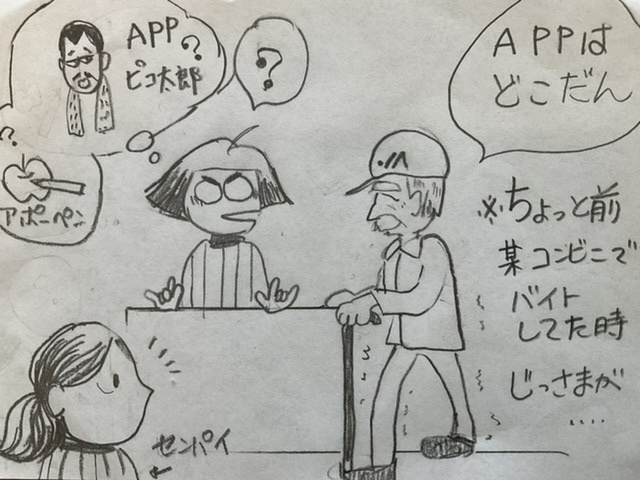 APP?
ピコ太郎
?
?
アポーペン
APPは
どこだん
※ちょっと前
某コンビニで
バイト
してた時
じっさまが
....
センパイ